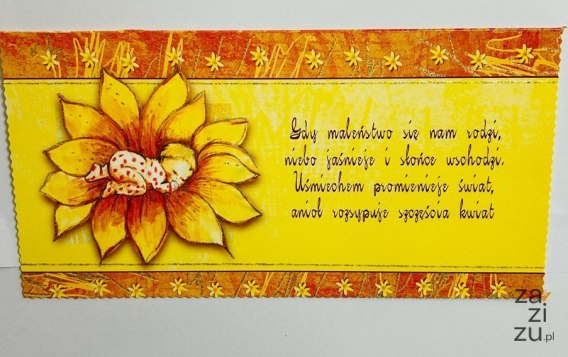 Gdy maleństwo się nam rodzi,
niebo jaśnieje i słońce wschodzi.
Uśmiechem promienieje świat,
anioł rozsypuje szczęścia kwiat
za
zi
zu.pl